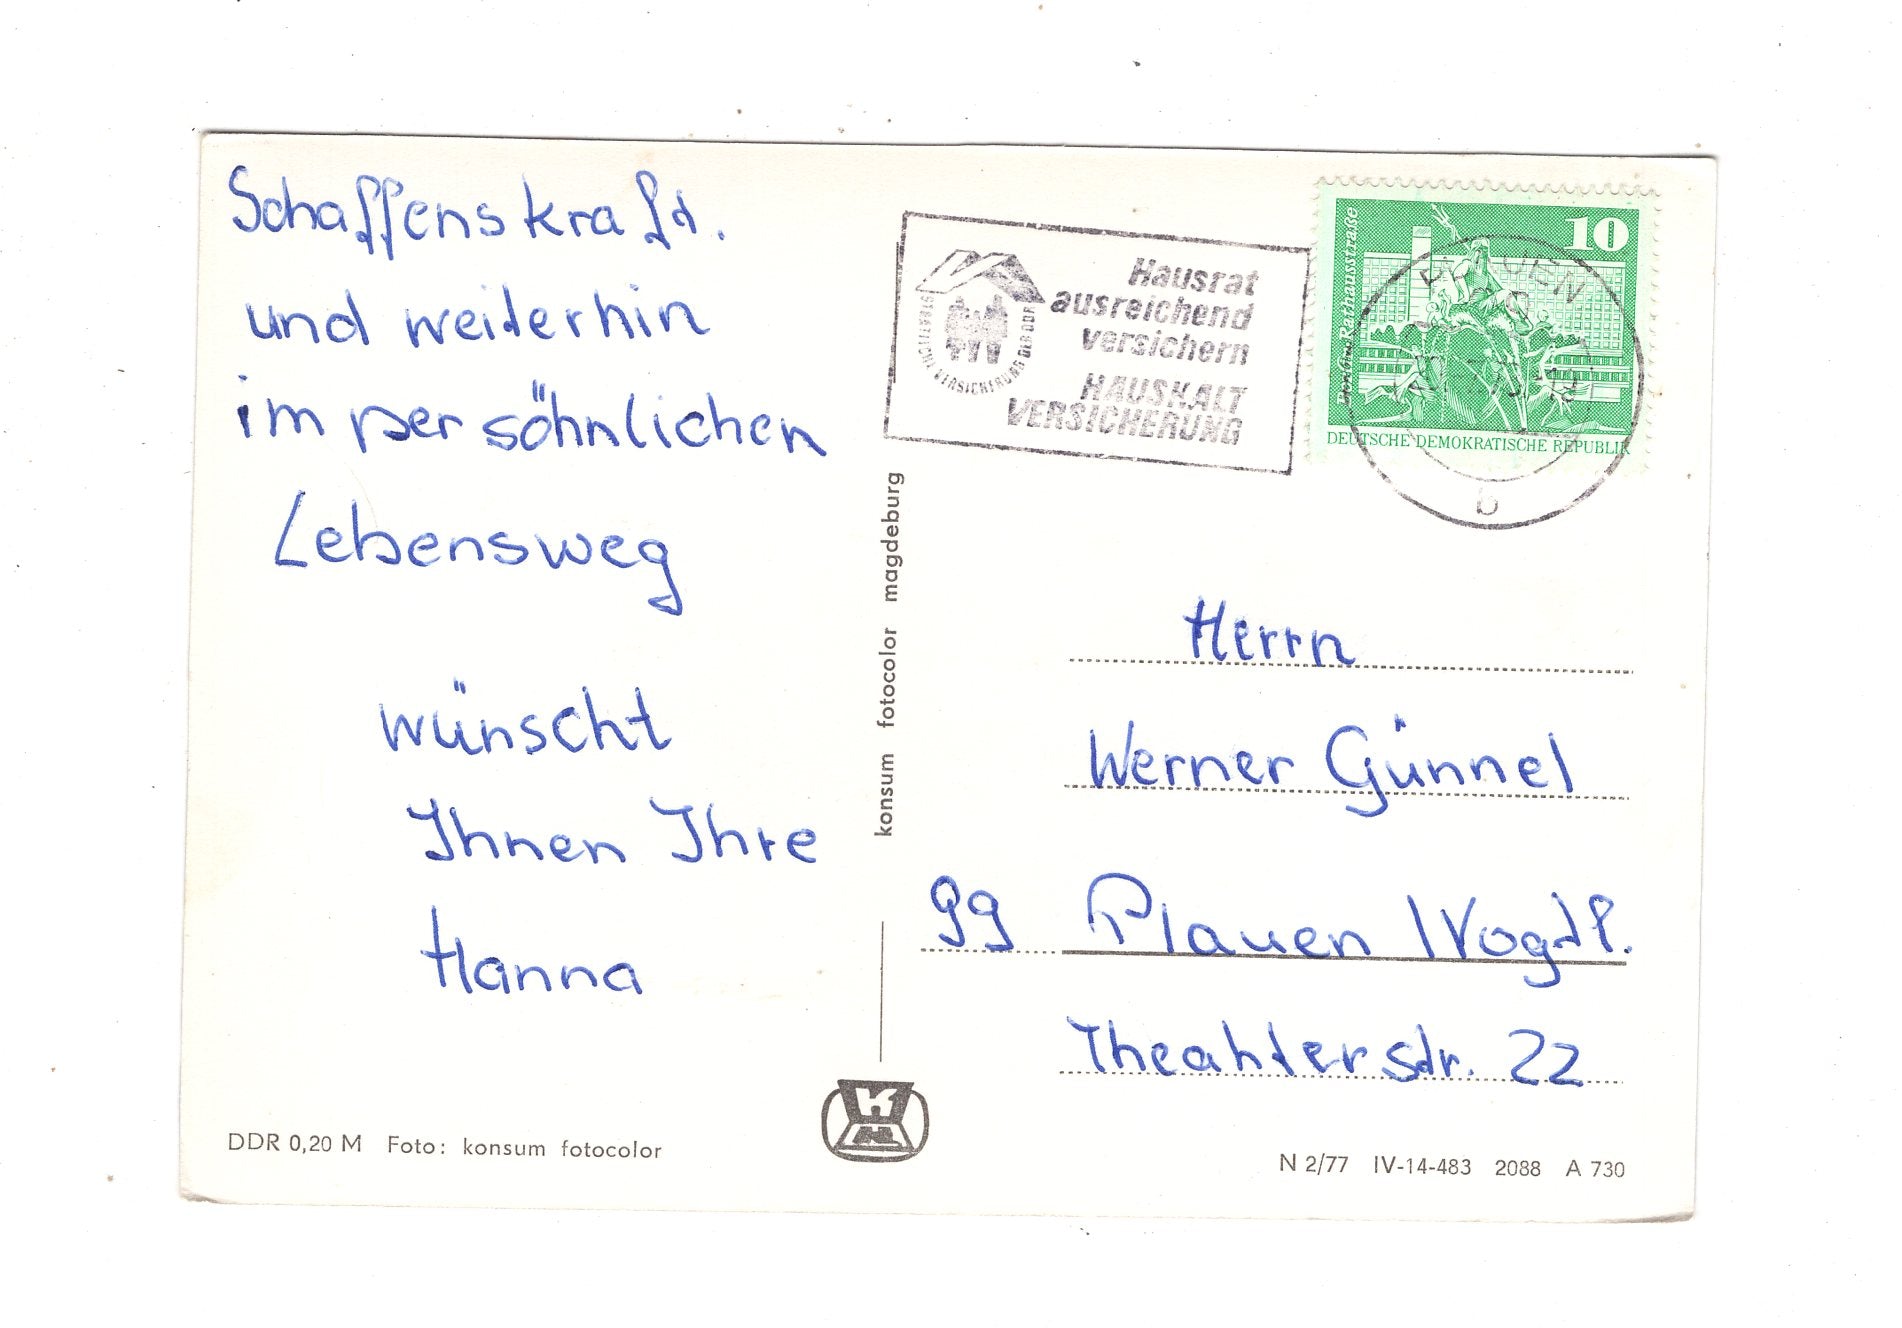 Schaffenskraft.
und weiterhin
im persöhnlichen
Lebensweg
wünscht
Ihnen Ihre
Hanna
DDR 0,20 M Foto: konsum fotocolor
konsum fotocolor magdeburg
STAATLICHE VERSICHERUNG DER DDR
Hausrat
ausreichend
versichern
HAUSHALT
VERSICHERUNG
10
Berlin, Rathausstraße
DEUTSCHE DEMOKRATISCHE REPUBLIK
PLAUEN
b
Herrn
Werner Günnel
99 Plauen /Vogtl.
Theahterstr. 22
N 2/77 IV-14-483 2088 A 730